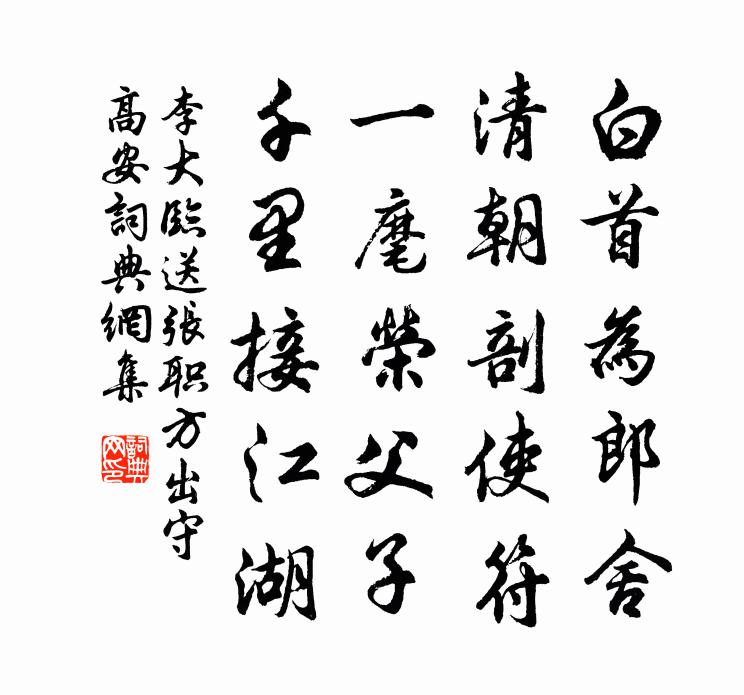 白首為郎舍
清朝剖使符
一麾榮父子
千里接江湖
李大臨送張职方出守
高安詞典網集
詞典网印